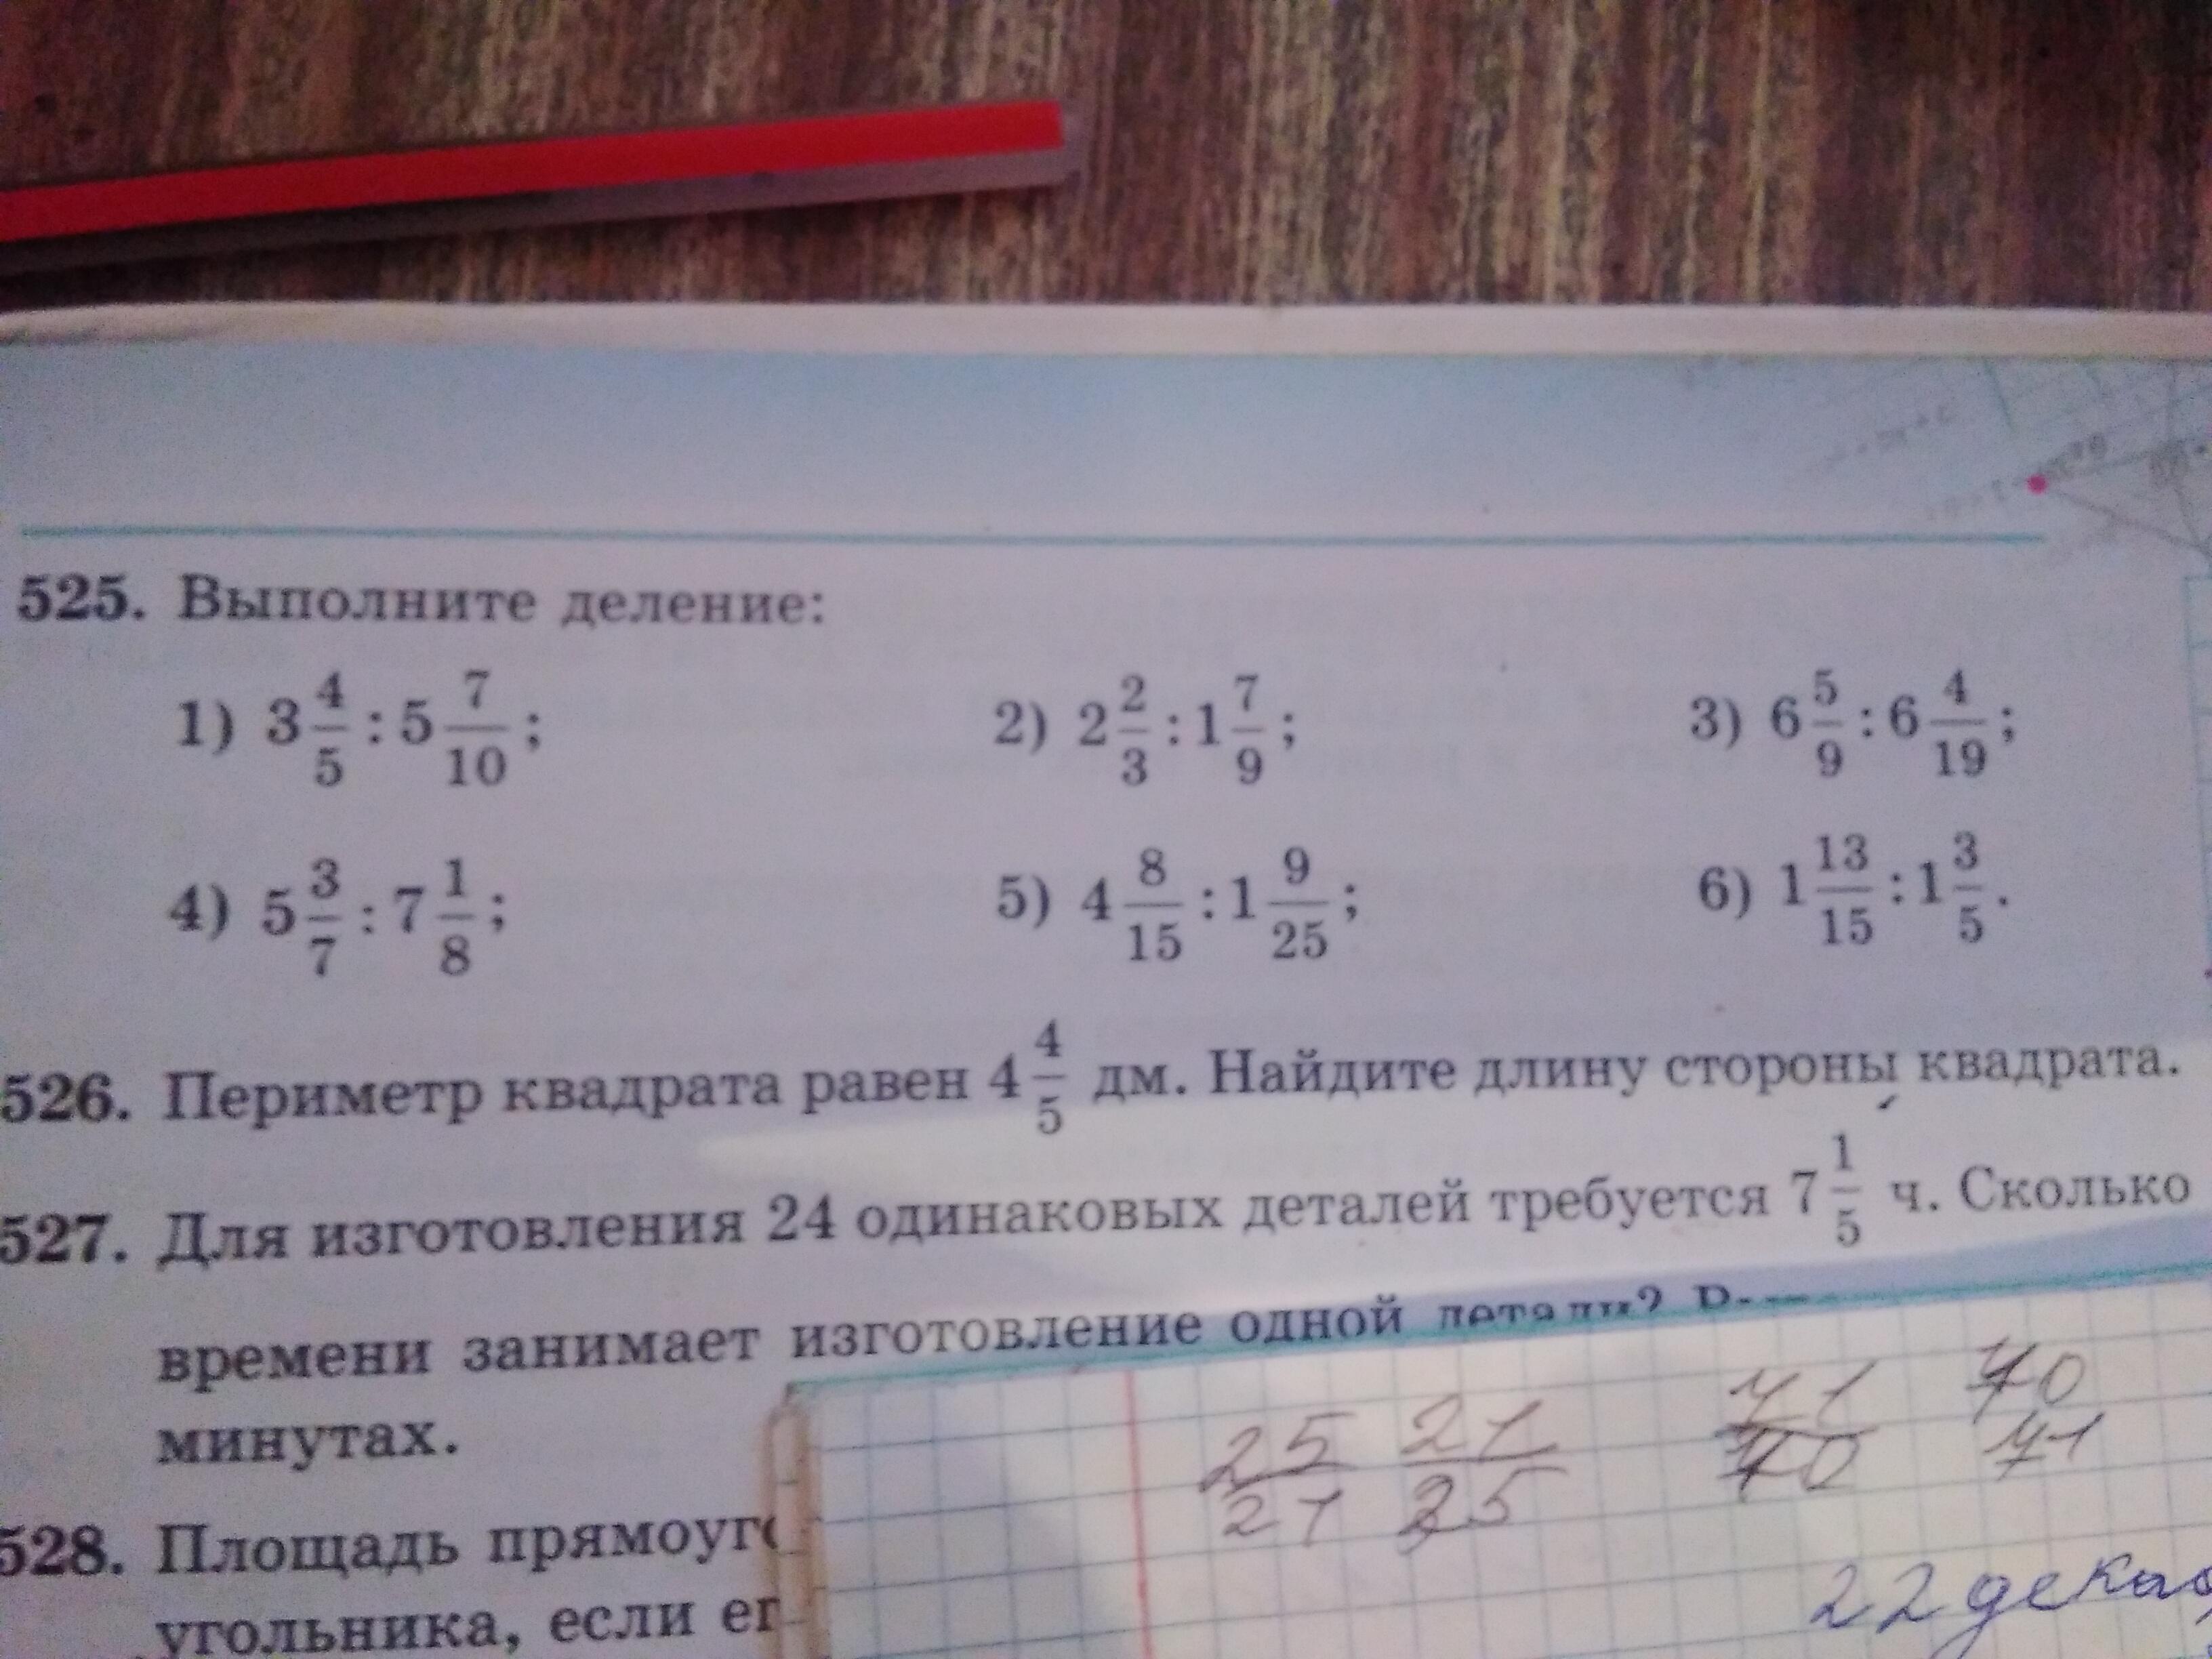 525. Выполните деление:
1) 3 4/5 : 5 7/10 ; 2) 2 2/3 : 1 7/9 ; 3) 6 5/9 : 6 4/19 ;
4) 5 3/7 : 7 1/8 ; 5) 4 8/15 : 1 9/25 ; 6) 1 13/15 : 1 3/5 .
526. Периметр квадрата равен 4 4/5 дм. Найдите длину стороны квадрата.
527. Для изготовления 24 одинаковых деталей требуется 7 1/5 ч. Сколько
времени занимает изготовление одной детали?
минутах.
25/21 21/25 71/70 70/71
528. Площадь прямоуг
22 дека
угольника, если ег